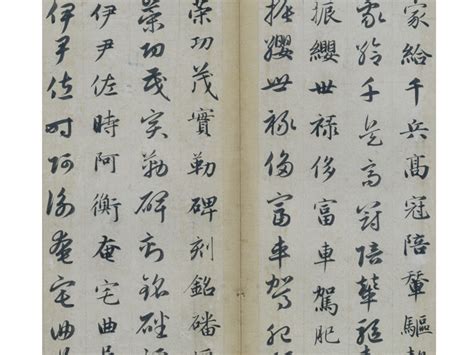 家給千兵高冠陪輦驅
家給千兵高冠陪輦驅
振纓世祿侈富車駕肥
振纓世祿侈富車駕肥
策功茂實勒碑刻銘磻
策功茂實勒碑刻銘磻
伊尹佐時阿衡奄宅曲
伊尹佐時阿衡奄宅曲